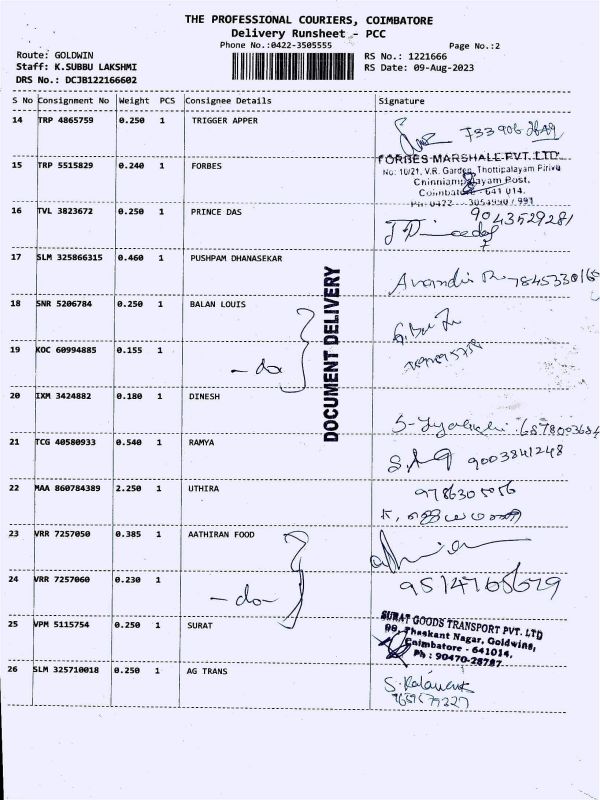 THE PROFESSIONAL COURIERS, COIMBATORE
Delivery Runsheet - PCC
Phone No.:0422-3505555
Page No.:2
Route: GOLDWIN
Staff: K.SUBBU LAKSHMI
DRS No.: DCJB122166602
RS No.: 1221666
RS Date: 09-Aug-2023
S No Consignment No Weight PCS Consignee Details Signature
14 TRP 4865759 0.250 1 TRIGGER APPER
15 TRP 5515829 0.240 1 FORBES
FORBES MARSHALL PVT. LTD.
No: 10/21, V.R. Garden, Thottipalayam Pirivu
Chinniampalayam Post,
Coimbatore - 641 014.
16 TVL 3823672 0.250 1 PRINCE DAS
9043529281
17 SLM 325866315 0.460 1 PUSHPAM DHANASEKAR
18 SNR 5206784 0.250 1 BALAN LOUIS
DOCUMENT DELIVERY
19 KOC 60994885 0.155 1
- do
20 IXM 3424882 0.180 1 DINESH
21 TCG 40580933 0.540 1 RAMYA
9003841248
22 MAA 860784389 2.250 1 UTHIRA
23 VRR 7257050 0.385 1 AATHIRAN FOOD
24 VRR 7257060 0.230 1
- do -
25 VPM 5115754 0.250 1 SURAT
SURAT GOODS TRANSPORT PVT. LTD
Thaskant Nagar, Goldwins,
Coimbatore - 641014.
Ph : 90470-28787
26 SLM 325710018 0.250 1 AG TRANS